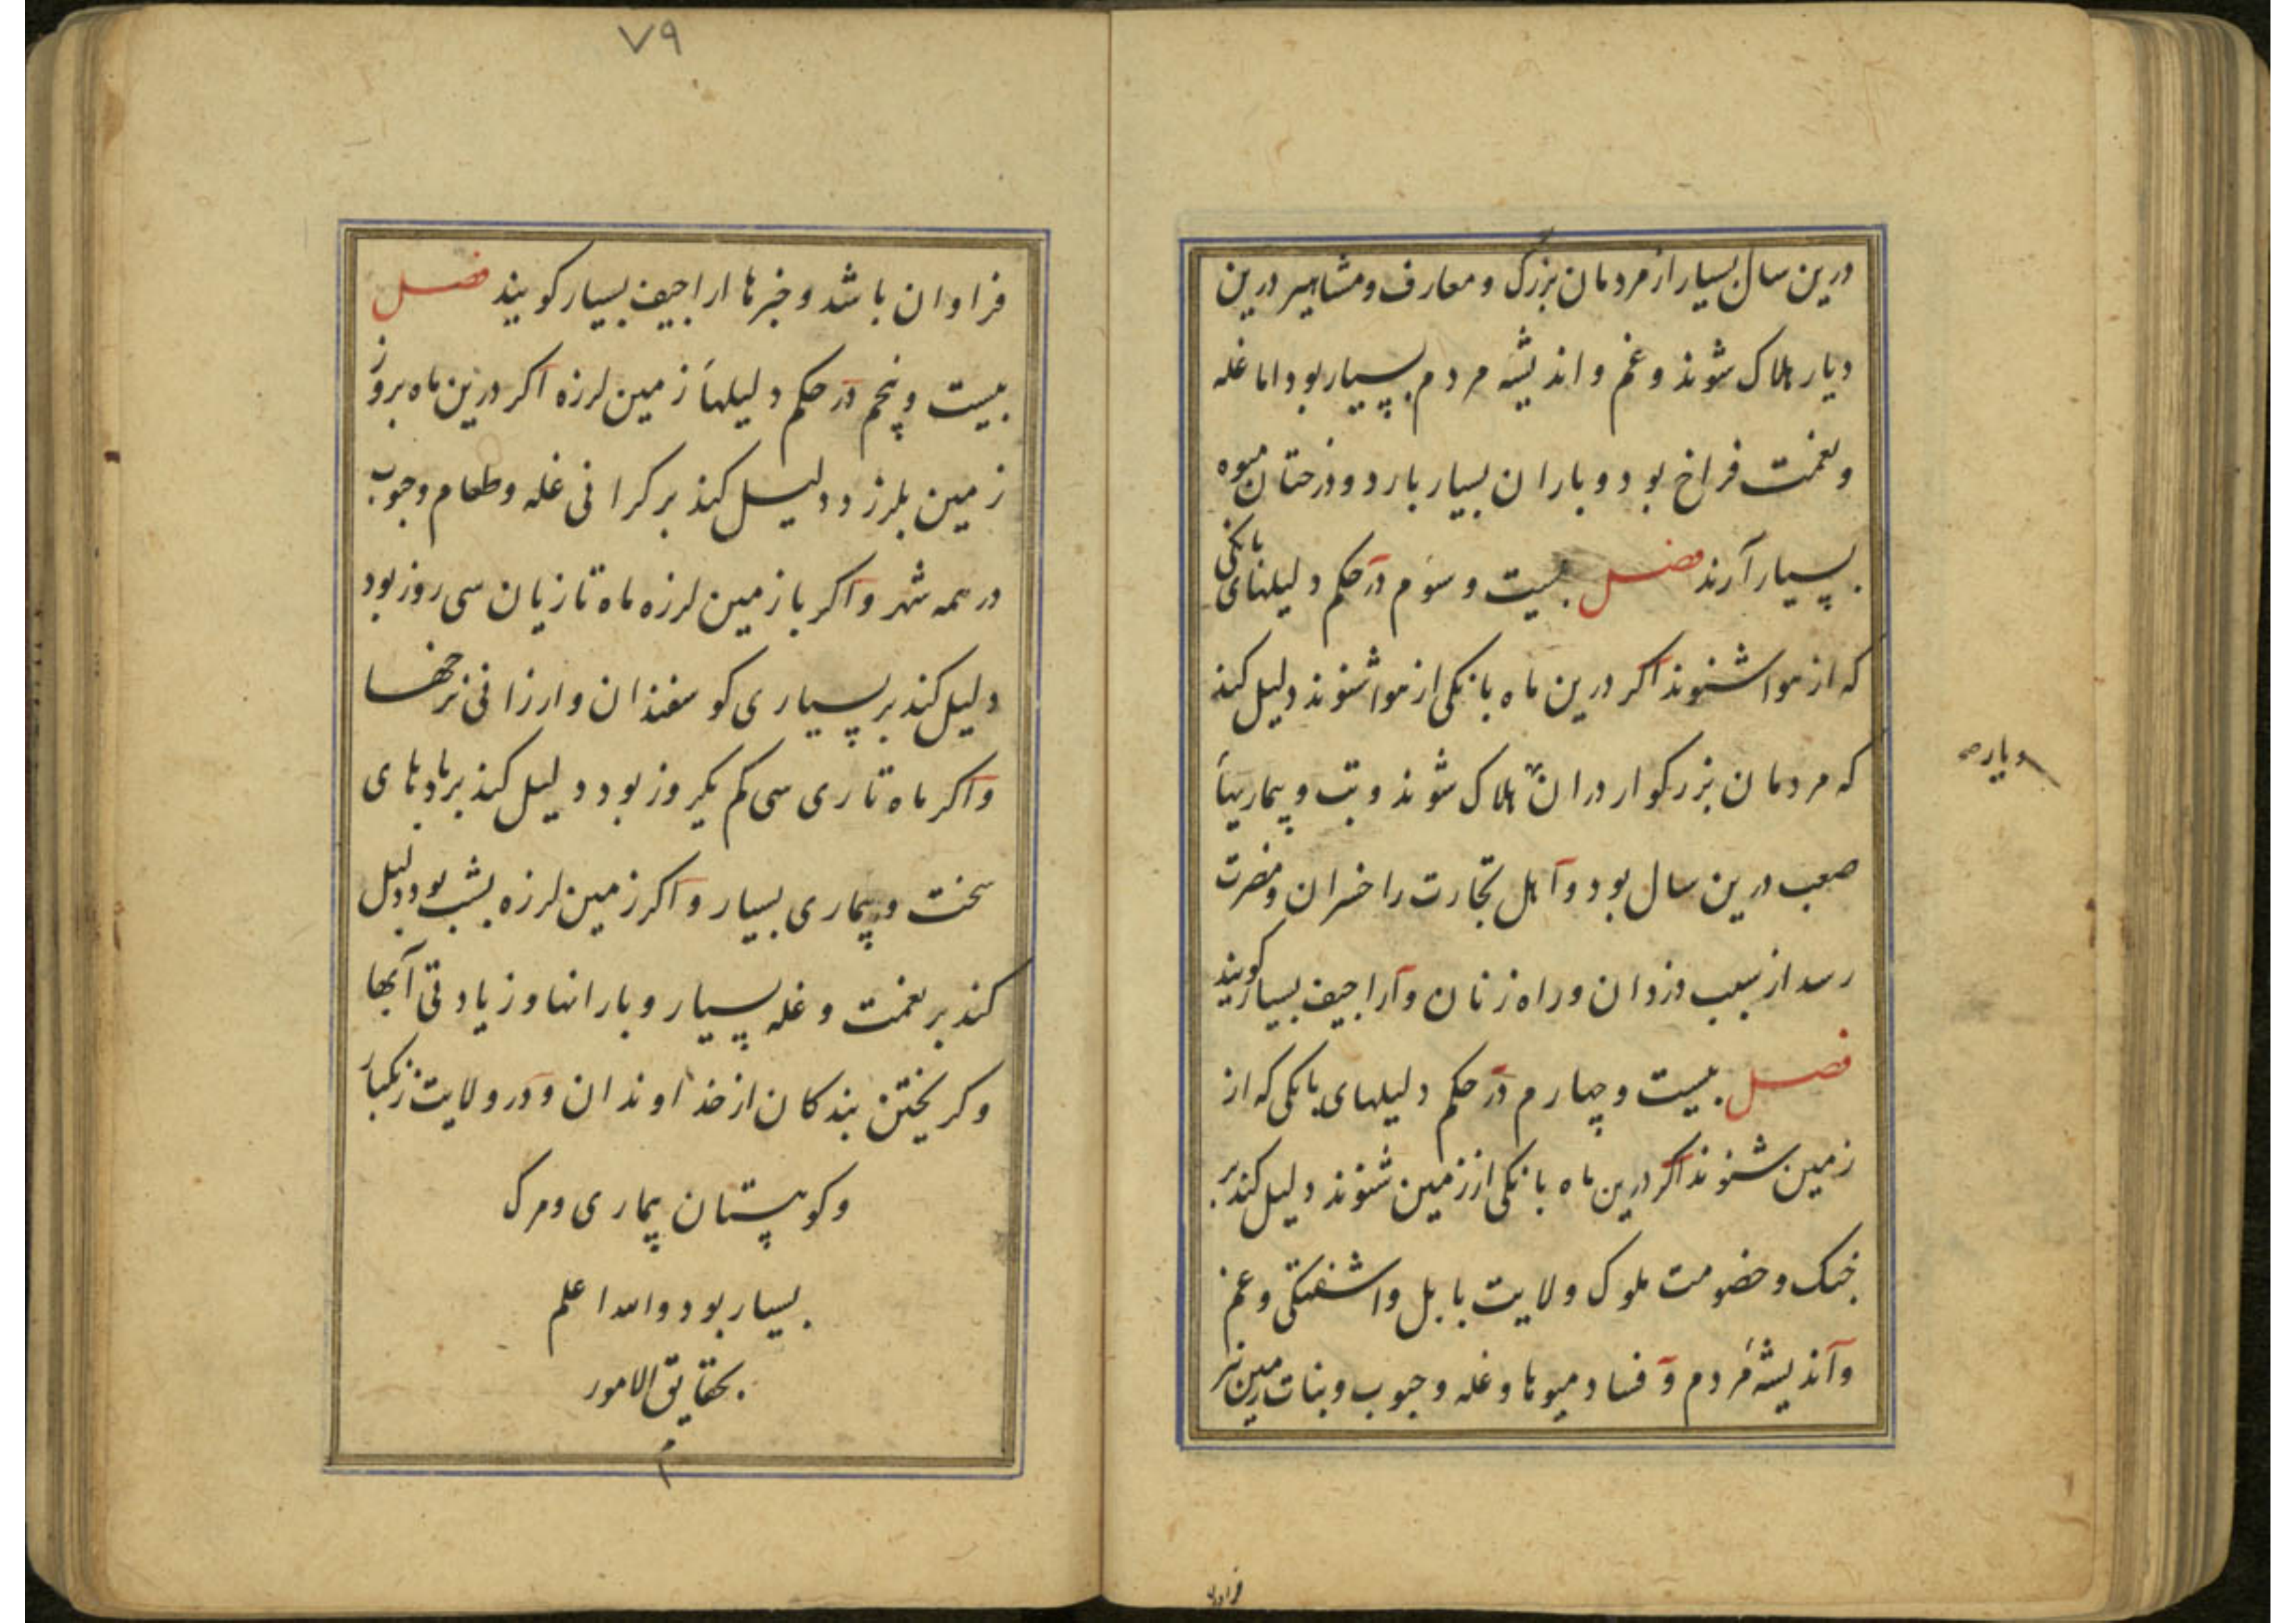 درین سال بسیار از مردمان بزرگ و معارف و مشاهیر درین
دیار هلاک شوند و غم و اندیشه مردم بسیار بود اما غله
و نعمت فراخ بود و باران بسیار بارد و درختان میوه
بسیار آرند فصل بیست و سوم در حکم دلیلهای بانکی
که از هوا شنوند اکر درین ماه بانکی از هوا شنوند دلیل کند
که مردمان بزرکوار دران هلاک شوند و تب و بیماریها
دیار صح
صعب درین سال بود و اهل تجارت را خسران و مضرت
رسد از سبب دزدان و راه زنان و اراجیف بسیار کویند
فصل بیست و چهارم در حکم دلیلهای بانکی که از
زمین شنوند اکر درین ماه بانکی از زمین شنوند دلیل کند بر
جنک و خصومت ملوک ولایت بابل و اشفتکی و غم
و اندیشه مردم و فساد میوها و غله و حبوب و نبات زمین نیز
فراوان
٧٩
فراوان باشد و خبرها اراجیف بسیار کویند فصل
بیست و پنجم در حکم دلیلها زمین لرزه اکر درین ماه بروز
زمین بلرزد دلیل کند بر کرانی غله و طعام و حبوب
در همه شهر و اکر با زمین لرزه ماه تازیان سی روز بود
دلیل کند بر بسیاری کوسفندان و ارزانی نرخها
و اکر ماه تازی سی کم یکروز بود دلیل کند بر بادهای
سخت و بیماری بسیار و اکر زمین لرزه بشب بود دلیل
کند بر نعمت و غله بسیار و بارانها و زیادتی آبها
و کریختن بندکان از خداوندان و در ولایت زنکبار
و کوهستان بیماری و مرک
بسیار بود والله اعلم
بحقایق الامور
م